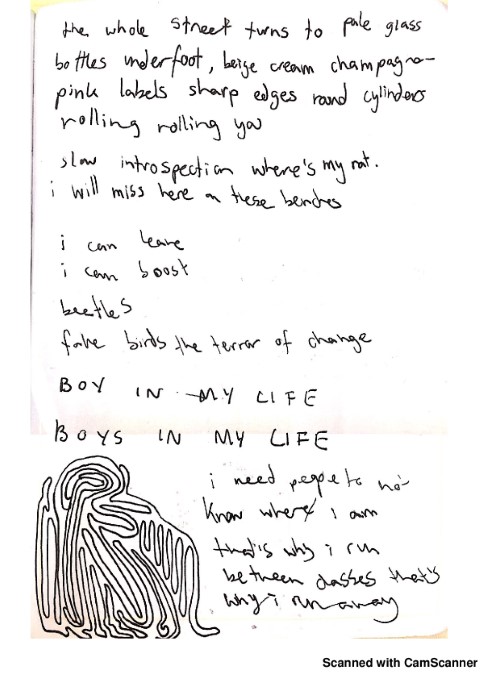 the whole street turns to pale glass
bottles underfoot, beige cream champagne-
pink labels sharp edges round cylinders
rolling rolling you
slow introspection where's my rat.
i will miss here on these benches
i can leave
i can boost
beetles
fake birds the terror of change
BOY IN MY LIFE
BOYS IN MY LIFE
i need people to not
know where i am
that's why i run
between classes that's
why i run away
Scanned with CamScanner